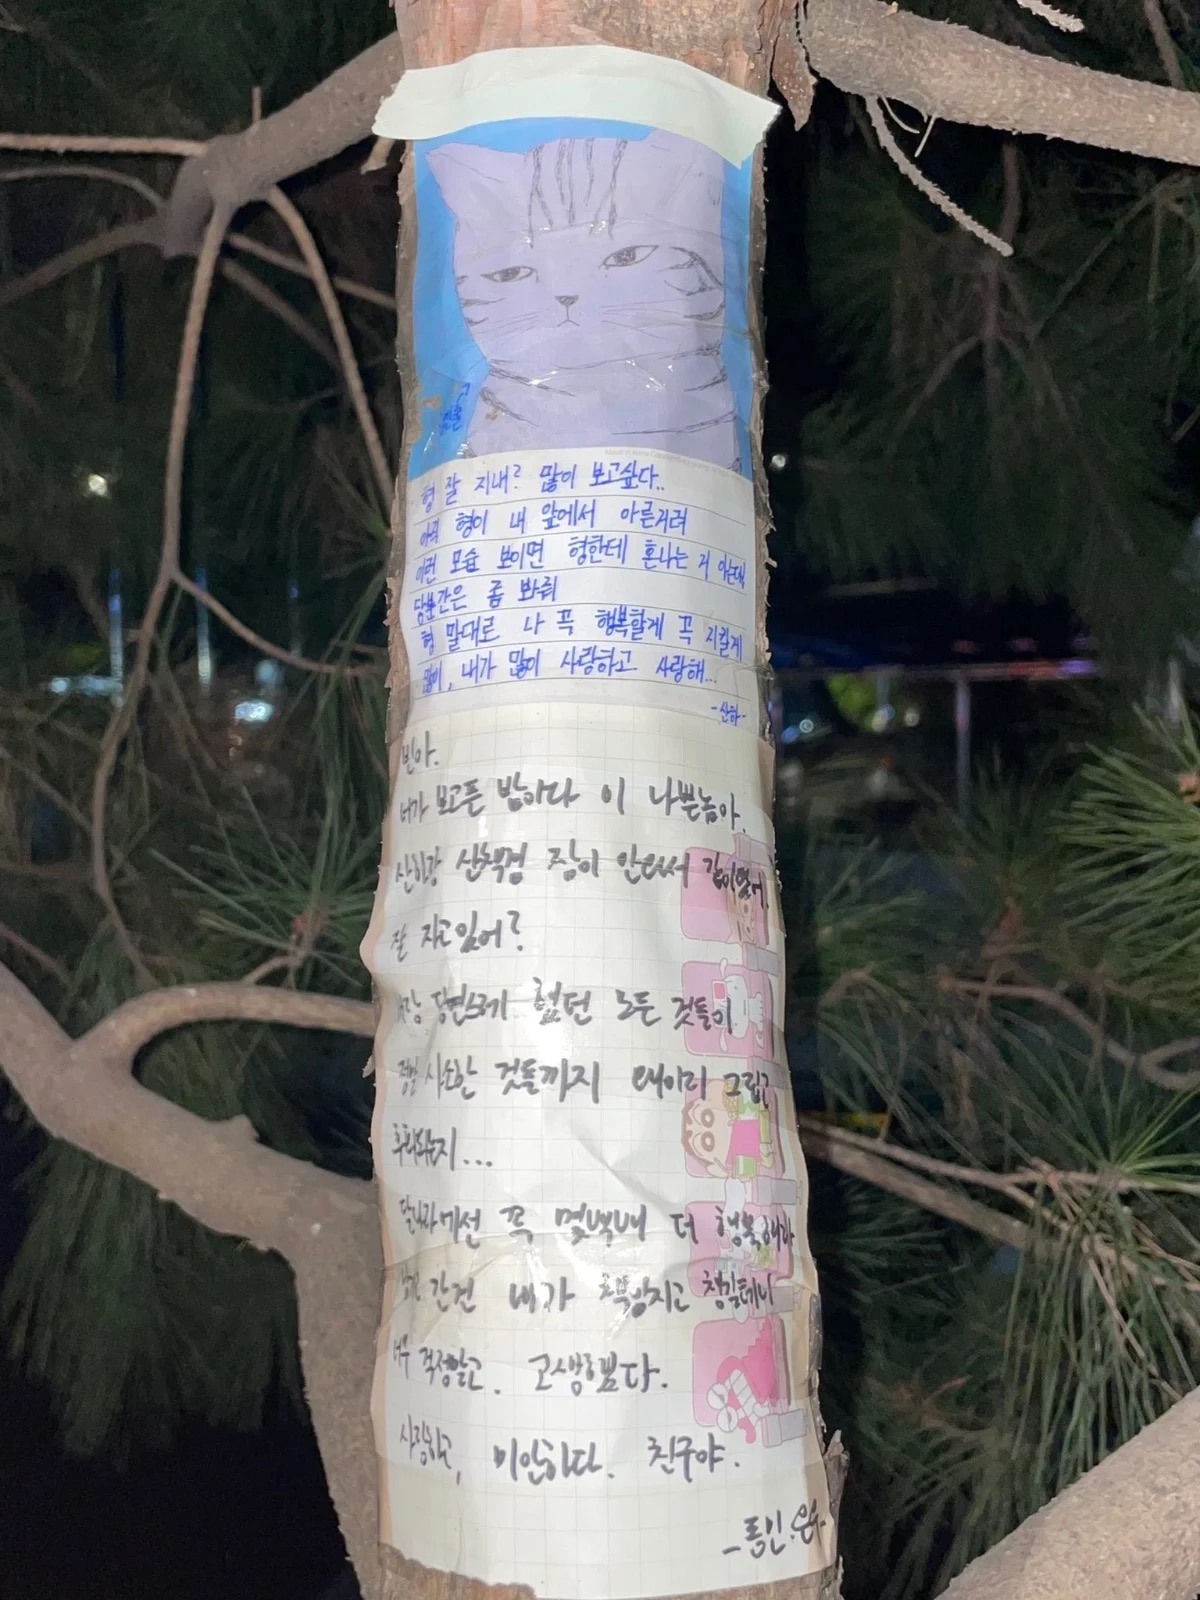 형 잘 지내? 많이 보고싶다..
아직 형이 내 앞에서 아른거려
이런 모습 보이면 형한테 혼나는 거 아는데
당분간은 좀 봐줘
형 말대로 나 꼭 행복할게 꼭 지킬게
많이, 내가 많이 사랑하고 사랑해...
-산하-
빈아.
너가 보고픈 밤이다 이 나쁜놈아.
산하랑 산책겸 잠이 안와서 같이왔어.
잘 자고있어?
당연스레 했던 모든 것들이
정말 사소한 것들까지 왜이리 그립고
후회되는지...
달나라에선 꼭 몇백배 더 행복해라
간건 내가 책임지고 챙길테니
너무 걱정말고. 고생했다.
사랑하고, 미안하다. 친구야.